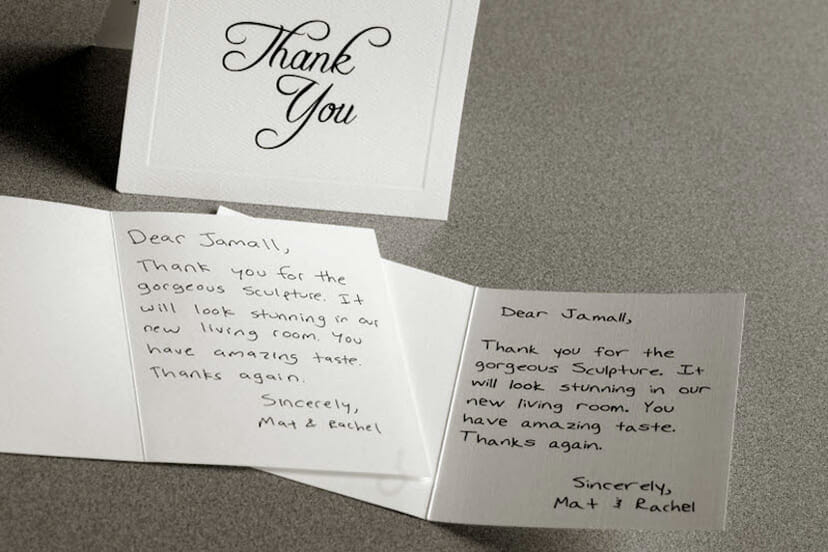 Thank
You
Dear Jamall,
Thank you for the
gorgeous Sculpture. It
will look stunning in our
new living room. You
have amazing taste.
Thanks again.
Sincerely,
Mat & Rachel
Dear Jamall,
Thank you for the
gorgeous Sculpture. It
will look stunning in our
new living room. You
have amazing taste.
Thanks again.
Sincerely,
Mat & Rachel